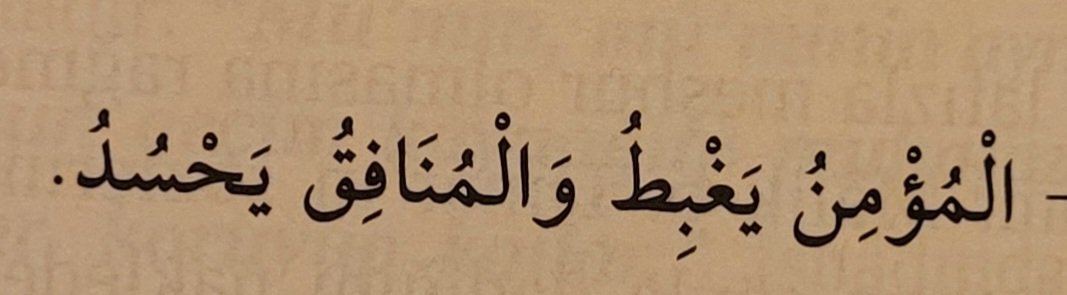 - الْمُؤْمِنُ يَغْبِطُ وَالْمُنَافِقُ يَحْسُدُ.